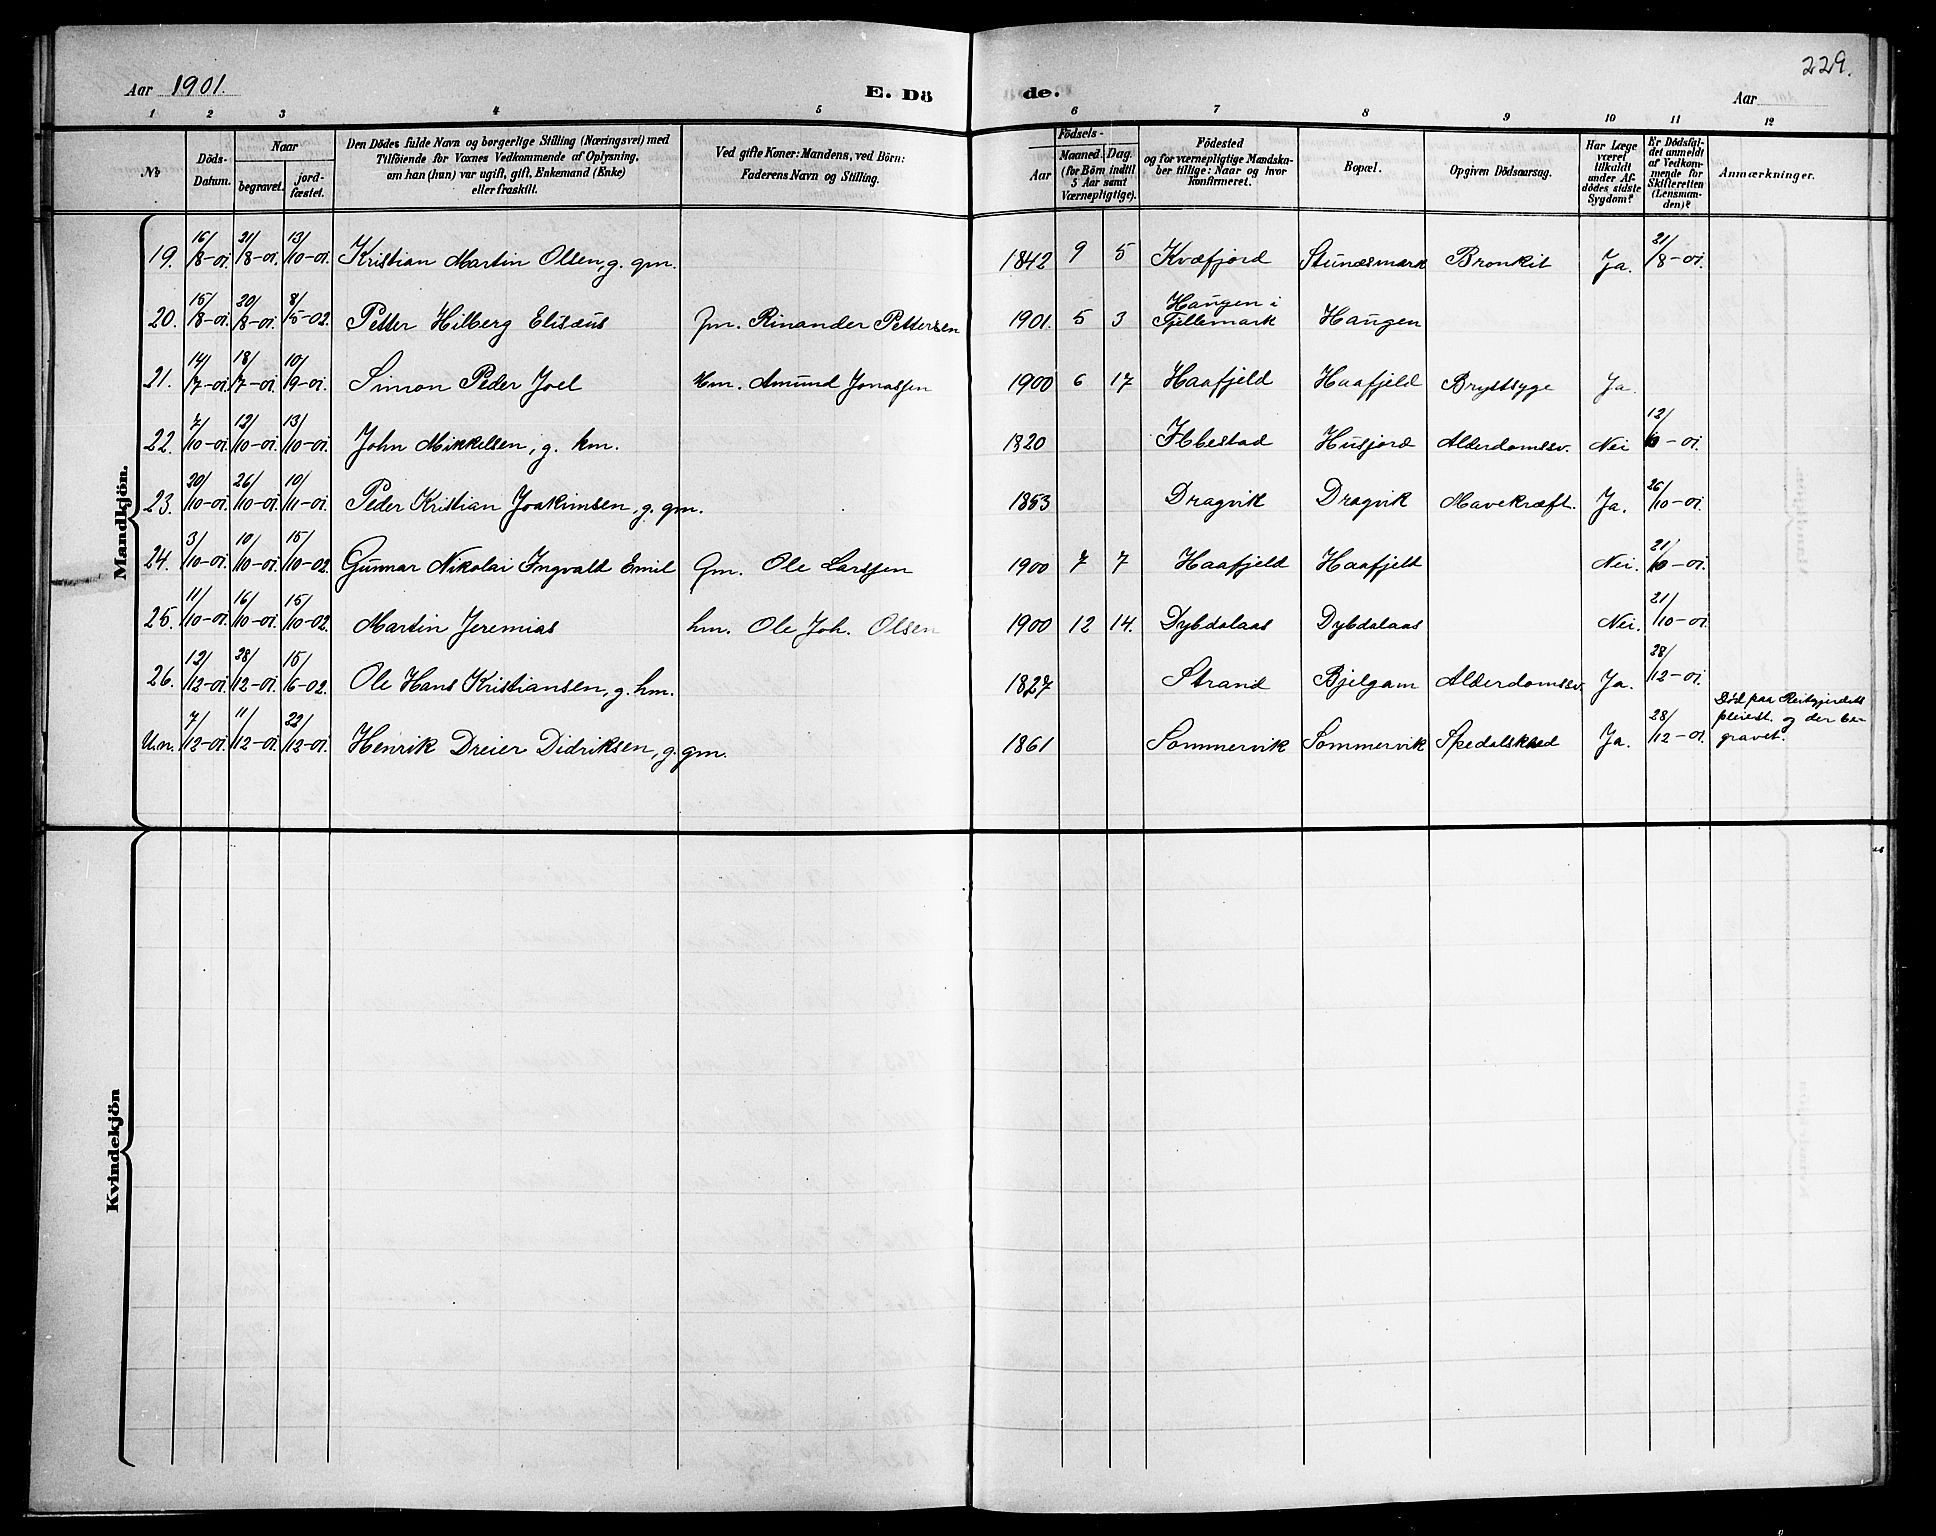 229.
Aar 1901.
E. Dö de.
Aar
1 2 3 4 5 6 7 8 9 10 11 12
No
Döds-Datum.
Naar
begravet.
jordfæstet.
Den Dödes fulde Navn og borgerlige Stilling (Næringsvei) med
Tilföiende for Voxnes Vedkommende af Oplysning,
om han (hun) var ugift, gift, Enkemand (Enke)
eller fraskilt.
Ved gifte Koner: Mandens, ved Börn:
Faderens Navn og Stilling.
Födsels-
Aar
Maaned. Dag.
(for Börn indtil
5 Aar samt
Værnepligtige).
Födested
og for værnepligtige Mandska-
ber tillige: Naar og hvor
konfirmeret.
Bopæl.
Opgiven Dödsaarsag.
Har Læge
været
tilkaldt
under Af-
dödes sidste
Sygdom?
Er Dödsfal-
det anmeldt
af Vedkom-
mende for
Skifteretten
(Lensman-
den)?
Anmærkninger.
Mandkjön.
19. 16/8-01. 21/8-01. 13/10-01. Kristian Martin Olsen, g. gm. 1842 9 5 Kvæfjord Stunæsmark Bronkit Ja. 21/8-01.
20. 15/8-01. 20/8-01. 8/5-02. Petter Hilberg Elisæus Gm. Rinander Pettersen 1901. 5 3 Haugen i Fjellemark Haugen
21. 14/7-01. 18/7-01. 10/9-01. Simon Peder Joel Hm. Amund Jonassen 1900 6 17 Haafjeld Haafjeld Brystsyge Ja
22. 7/10-01. 12/10-01. 13/10-01. John Mikkelsen, g. km. 1820 Ibbestad Husjord Alderdomssv. Nei 12/10-01.
23. 20/10-01. 26/10-01. 10/11-01. Peder Kristian Joakimsen, g. gm. 1853 Dragvik Dragvik Mavekræft. Ja. 26/10-01.
24. 3/10-01. 10/10-01. 15/10-02. Gunnar Nikolai Ingvald Emil Gm. Ole Larssen 1900 7 7 Haafjeld Haafjeld Nei. 21/10-01.
25. 11/10-01. 16/10-01. 15/10-02. Martin Jeremias hm. Ole Joh. Olsen 1900 12 14. Dybdalaas Dybdalaas Nei. 21/10-01.
26. 12/12-01. 28/12-01. 15/6-02. Ole Hans Kristiansen, g. hm. 1827 Strand Bjelgam Alderdomssv. Ja. 28/12-01.
U.n. 7/12-01. 11/12-01. 22/12-01. Henrik Dreier Didriksen, g. gm. 1861 Sommervik Sommervik Spedalskhed Ja. 28/12-01. Död paa Reitgjerdets pleiest. og der be- gravet.
Kvindekjön